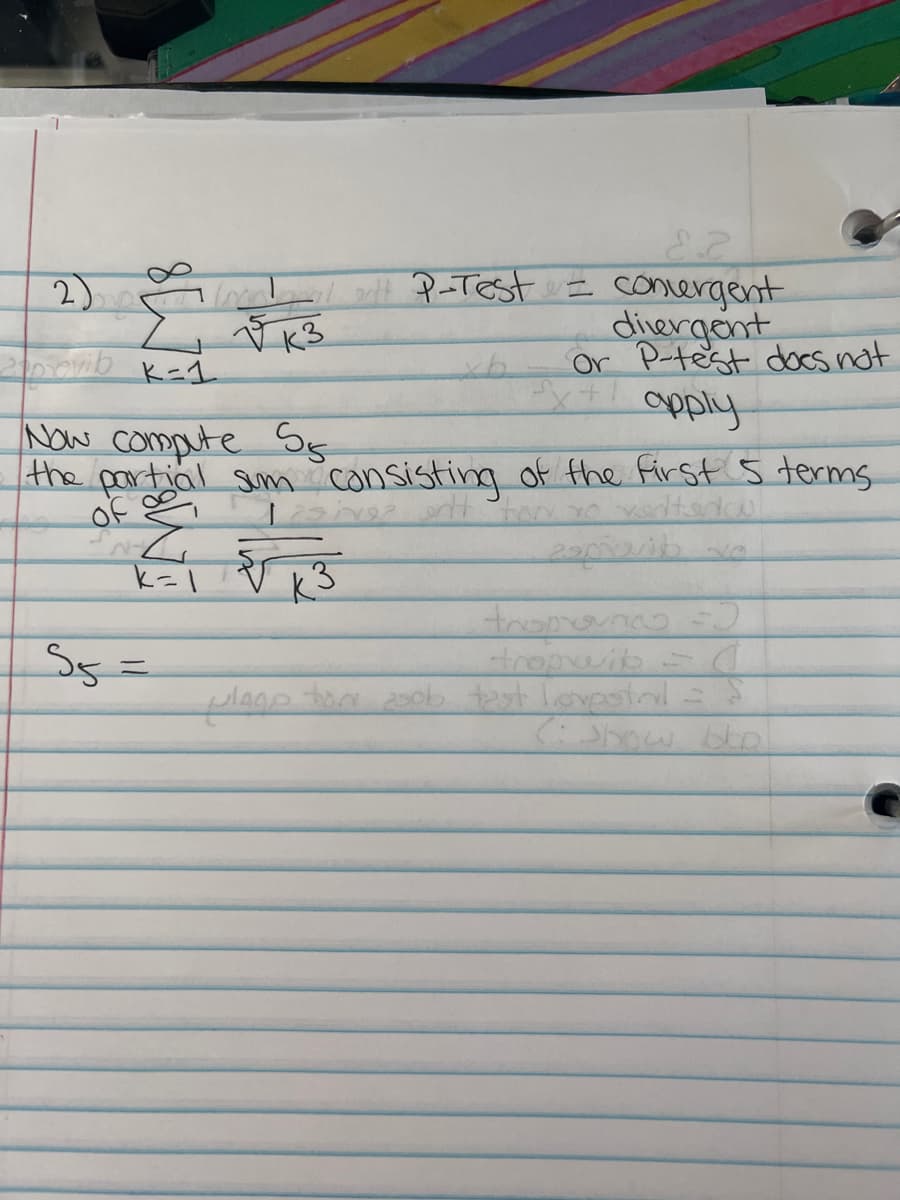 2) ∞ Σ k=1 1/⁵√k³ P-Test = convergent
divergent
or P-test does not
apply
Now compute S₅
the partial sum consisting of the first 5 terms
of ∞ Σ k=1 1/⁵√k³
S₅ =